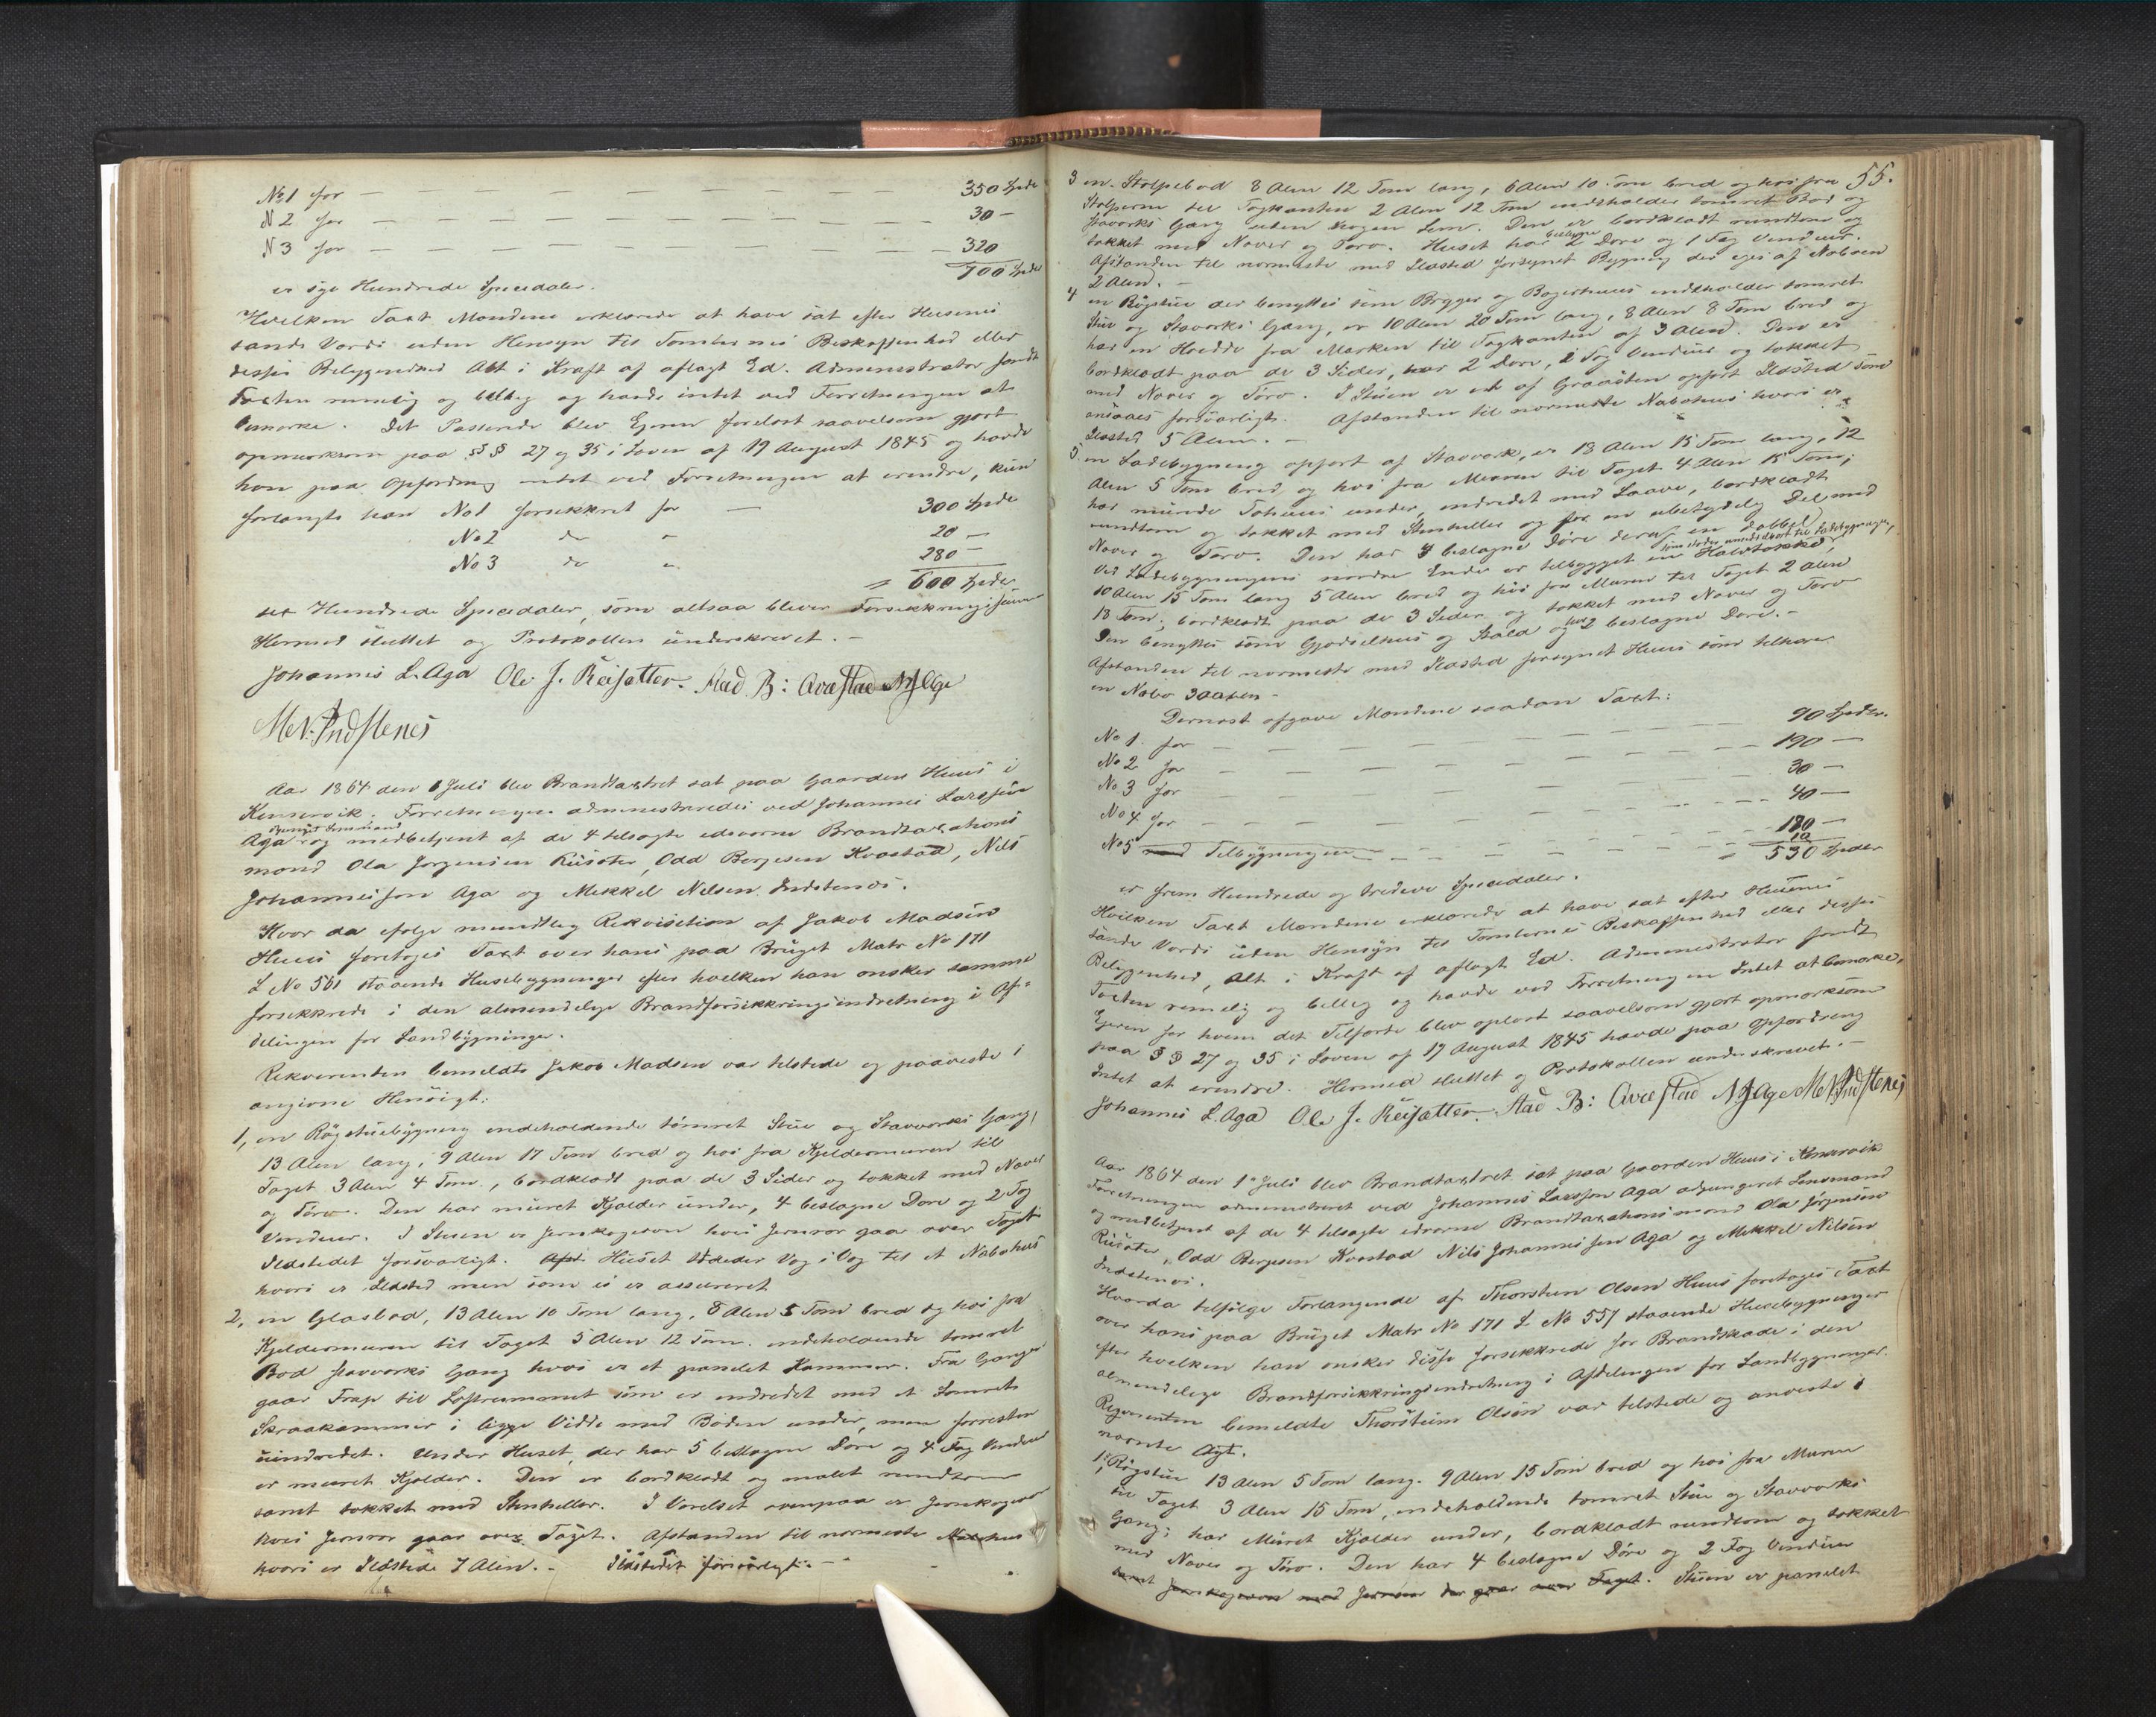 No 1 for — — — — — — — — 350 Spdr
N 2 for — — — — — — — — 30 —
N 3 for — — — — — — — — 320
700 Spdr
er syv Hundrede Speciedaler.
Hvilken Taxt Mændene erklærede at have sat efter Husenes
sande Værdi uden Hensyn til Tomternes Beskaffenhed eller
disses Beliggenhed Alt i Kraft af aflagt Ed. Administrator fandt
Taxten rimelig og billig og havde intet ved Forretningen at
bemærke. Det Passerede blev Ejeren forelæst saavelsom gjort
opmærksom paa §§ 27 og 35 i Loven af 19 August 1845 og havde
han paa Opfordring intet ved Forretningen at erendre, kun
forlangte han No 1 forsikkret for — 300 Spdr
No 2 do " 20 —
No 3 do " 280 —
= 600 Spdr
sex Hundrede Speciedaler, som altsaa bliver Forsikkringssum
Hermed sluttet og Protokollen underskrevet. —
Johannis L. Aga Ole J. Reisæter. Aad B: Qvæstad N J Aga
M. N. Indstenes
Aar 1864 den 1 Juli blev Brandtaxtret sat paa Gaarden Huus i
Kinservik. Forretningen administreredes ved Johannis Larssen
Aga adjungeret Lensmand og medbetjent af de 4 tilsagte edsvorne Brandtaxations
mænd Ola Jørgensen Riisæter, Odd Berjesen Kvæstad, Nils
Johannissen Aga og Mekkel Nilsen Indstenes.
Hvor da ifølge mundtlig Rekvisition af Jakob Madsen
Huus foretoges Taxt over hans paa Bruget Matr No 171
L No 561 staaende Husebygninger efter hvilken han ønsker samme
forsikkrede i den almindelige Brandforsikkringsindretning i Af-
delingen for Landbygninger.
Rekvirenten bemeldte Jakob Madsen var tilstede og paaviste i
angivne Hensigt:
1, en Røgstuebygning indeholdende tømret Stue og Stavværks Gang,
13 Alen lang, 9 Alen 17 Tom bred og høi fra Kjeldermuren til
Taget 3 Alen 4 Tom., bordklædt paa de 3 Sider og tækket med Næver
og Törv. Den har müret Kjælder under, 4 beslagne Døre og 2 Fag
Vinduer. I Stuen er Jernkogeovn hvis Jernrør gaa over Taget
Ildstedet forsvarligt. Afst Huset støder Væg i Væg til et Nabohus
hvori er Ildsted men som ei er assureret
2, en Glasbod, 13 Alen 10 Tom lang, 8 Alen 5 Tom bred og høi fra
Kjeldermuren til Taget 5 Alen 12 Tom. indeholdende tømret
Bod stavværks Gang hvori er et panelet Kammer. Fra Gangen
gaar Trap til Loftrummet som er indredet med et tømret
Skraakammer i ligge Vidde med Boden under, men forresten
uindredet. Under Huset, der har 5 beslagne Døre og 4 Fag Vinduer
er müret Kjælder. Den er bordklædt og malet rundtom
samt tækket med Stenheller. I Værelset ovenpaa er Jernkogeovn
hvis Jernrør gaar over Taget. Afstanden til nærmeste Nabohus
hvori er Ildstede 7 Alen. — Ildstedet forsvarligt. —
55.
3 en Stolpebod 8 Alen 12 Tom lang, 6 Alen 10 Tom bred og høi fra
Stolperne til Tagkanten 2 Alen 12 Tom indeholder tømret Bod og
Stavværks Gang uden nogen Lem. Den er bordklædt rundtom og
tækket med Næver og Törv. Huset har 2 beslagne Døre og 1 Fag Vinduer.
Afstanden til nærmeste med Ildsted forsynet Bygning der ejes af Naboen
2 Alen. —
4 en Røgstue der benyttes som Brygger og Bagerhuus indeholder tømret
Stue og Stavværks Gang, er 10 Alen 20 Tom lang, 8 Alen 8 Tom bred og
har en Hødde fra Marken til Tagkanten af 3 Alen. Den er
bordklædt paa de 3 Sider, har 2 Døre, 2 Fag Vinduer og tækket
med Næver og Törv. I Stuen er et af Graasten opført Ildsted som
ansaaes forsvarligt. Afstanden til nærmeste Nabohuus hvori er
Ildsted 5 Alen. —
5. en Ladebygning opført af Stavværk, er 18 Alen 15 Tom lang, 12
Alen 5 Tom bred og høi fra Muren til Taget 4 Alen 15 Tom;
har murede Fæhuus under, indredet med Laave, bordklædt
rundtom og tækket med Stenheller og for en ubetydelig Del med
Næver og Torv. Den har 4 beslagne Døre deraf en dobbel.
Ved Ladebygningens nordre Ende er tilbygget en Halvtække, som støder umidelbart til Ladebygningen,
10 Alen 15 Tom lang 5 Alen bred og høi fra Muren til Taget 2 Alen
18 Tom, bordklædt paa de 3 Sider og tækket med Næver og Torv
Den benyttes som Gjødselhuus og Stald og har 2 beslagne Døre. —
Afstanden til nærmeste med Ildsted forsynet Huus som tilhører
en Nabo 3 Alen —
Dernæst afgave Mændene saadan Taxt:
No 1 for — — — — — — 90 Spdr.
No 2 for — — — — — — 190 —
No 3 for — — — — — — 30 —
No 4 for — — — — — — 40 —
No 5 — — — — — — 180 —
med Tilbygningen — — — — —
= 530 Spdr
er fem Hundrede og tredeve Speciedaler.
Hvilken Taxt Mændene erklærede at have sat efter Husenes
sande Værdi uden Hensyn til Tomternes Beskaffenhed eller disses
Beliggenhed, Alt i Kraft af aflagt Ed. Administrator fandt
Taxten rimelig og billig og havde ved Forretningen Intet at bemærke.
Ejeren for hvem det Tilførte blev oplæst saavelsom gjort opmærksom
paa §§ 27 og 35 i Loven af 19 August 1845 havde paa Opfordring
Intet at erendre. Hermed sluttet og Protokollen underskrevet. —
Johannis L. Aga Ole J. Reisæter. Aad B: Qvæstad N J Aga M. N. Indstenes
Aar 1864 den 1 Juli blev Brandtaxtret sat paa Gaarden Huus i Kinservik
Forretningen administreret ved Johannis Larssen Aga adjungeret Lensmand
og medbetjent af de 4 tilsagte edsvorne Brandtaxationsmænd Ola Jørgensen
Riisæter, Odd Bergesen Kvæstad Nils Johannissen Aga og Mekkel Nilsen
Indstenes.
Hvorda tilfølge Forlangende af Thorstein Olsen Huus foretoges Taxt
over hans paa Bruget Matr No 171 L No 557 staaende Husebygninger
efter hvilken han ønsker disse forsikkrede for Brandskade i den
almindelige Brandforsikkringsindretning i Afdelingen for Landbygninger.
Reqvirenten bemeldte Thorstein Olsen var tilstede og anviste i
nævnte Agt.
1, Røgstue 13 Alen 5 Tom lang. 9 Alen 15 Tom bred og høi fra Muren
til Taget 3 Alen 15 Tom, indeholdende tømret Stue og Stavværks
Gang; har Müret Kjælder under, bordklædt rundtom og tækket
med Næver og Törv. Den har 4 beslagne Døre og 2 Fag Vinduer
samt Jernkogeovn med Jernrør der gaar over Taget. Stuen er panelet